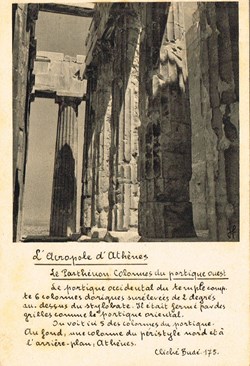 L'Acropole d'Athènes
Le Parthénon. Colonnes du portique ouest
Le portique occidental du temple comp-
te 6 colonnes doriques surélevées de 2 degrés
au-dessus du stylobate. Il était fermé par des
grilles comme le portique oriental.
On voit ici 5 des colonnes du portique.
Au fond, une colonne du péristyle nord et à
l'arrière-plan, Athènes.
Cliché Budé - 175.